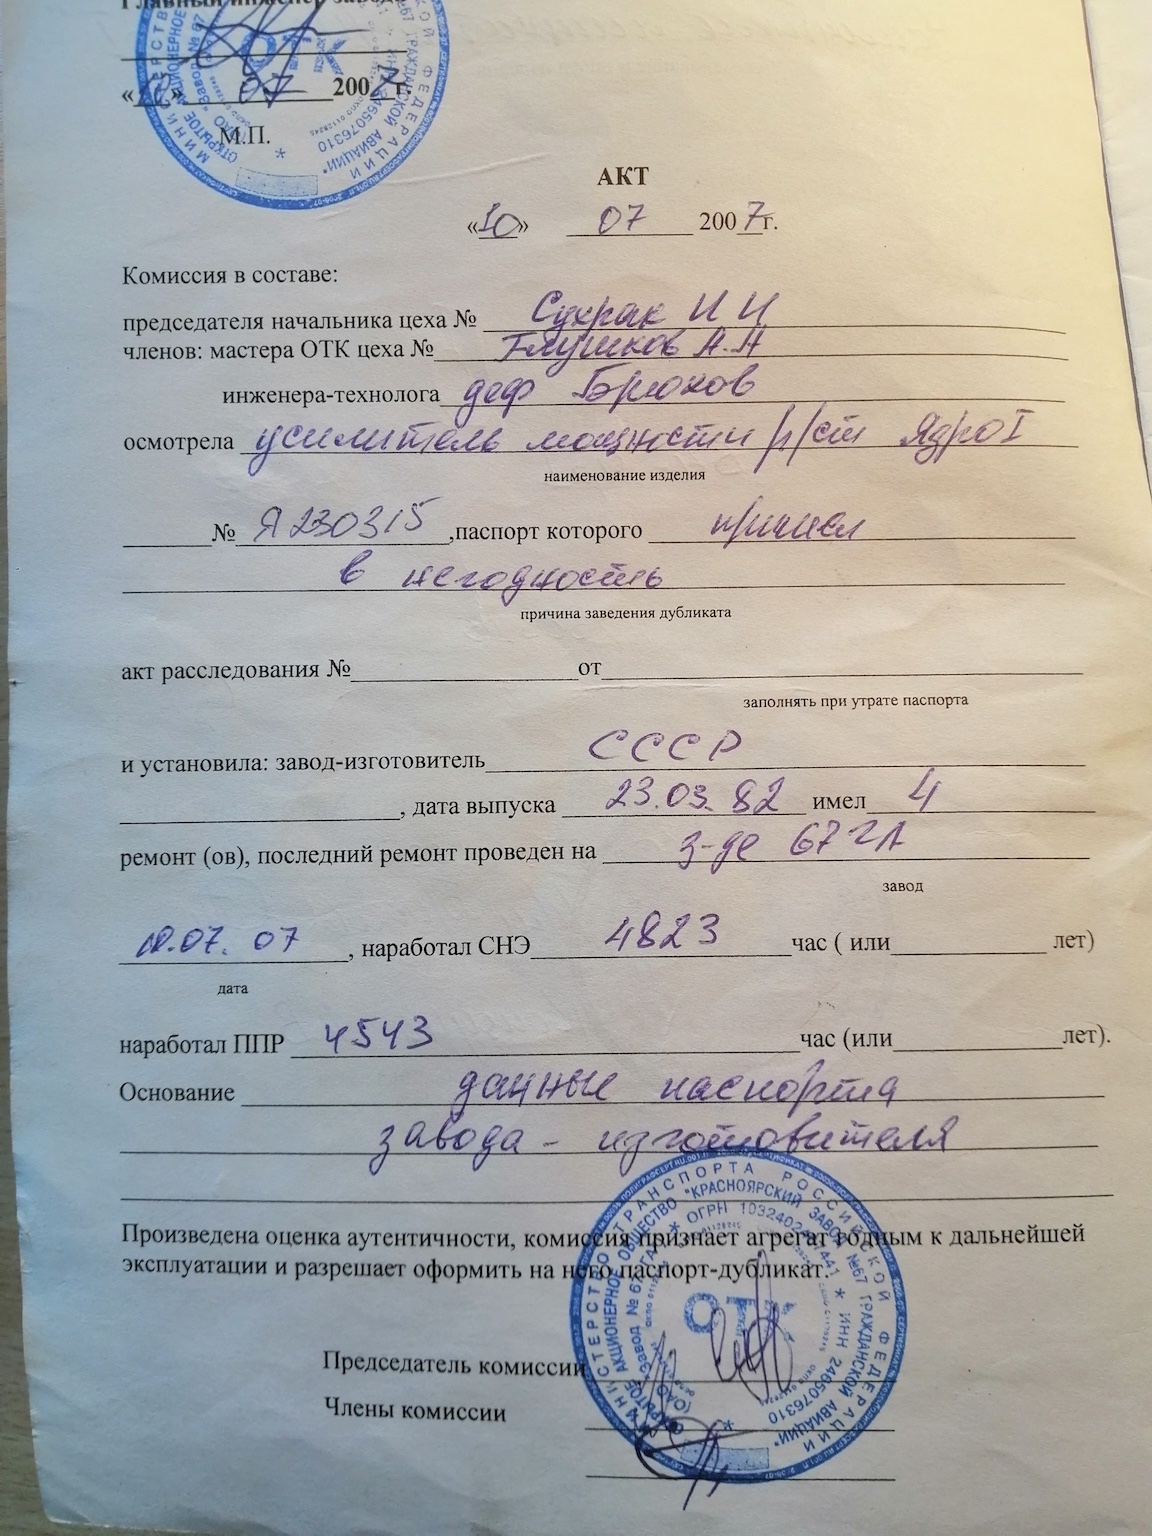 Главный инженер завода
«10» 07 2007 г.
М.П.
АКТ
«10» 07 2007г.
Комиссия в составе:
председателя начальника цеха № Сухрак И И
членов: мастера ОТК цеха № Глушков А.А
инженера-технолога деф Брюхов
осмотрела усилитель мощности р/ст ЯдроI
наименование изделия
№ Я230315 ,паспорт которого пришел
в негодность
причина заведения дубликата
акт расследования № от
заполнять при утрате паспорта
и установила: завод-изготовитель СССР
, дата выпуска 23.03.82 имел 4
ремонт (ов), последний ремонт проведен на з-де 67 ГА
завод
10.07.07 , наработал СНЭ 4823 час ( или лет)
дата
наработал ППР 4543 час (или лет).
Основание данные паспорта
завода - изготовителя
Произведена оценка аутентичности, комиссия признает агрегат годным к дальнейшей
эксплуатации и разрешает оформить на него паспорт-дубликат.
Председатель комиссии
Члены комиссии
МИНИСТЕРСТВО ТРАНСПОРТА РОССИЙСКОЙ ФЕДЕРАЦИИ
ОТКРЫТОЕ АКЦИОНЕРНОЕ ОБЩЕСТВО "КРАСНОЯРСКИЙ ЗАВОД №67 ГРАЖДАНСКОЙ АВИАЦИИ"
ИНН 2465076310
ОТК